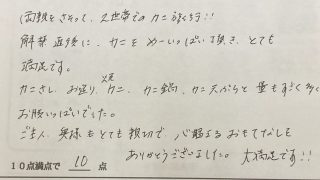 両親をさそって、2世帯でのカニづくし!!
解禁直後に、カニをめーいっぱい頂き、とても
満足です。
カニさし、お造り、焼カニ、カニ鍋、カニ天ぷらと量もすごく多く
お腹いっぱいでした。
ご主人、奥様もとても親切で、心暖まるおもてなしを
ありがとうございました。大満足です!!
10点満点で 10 点